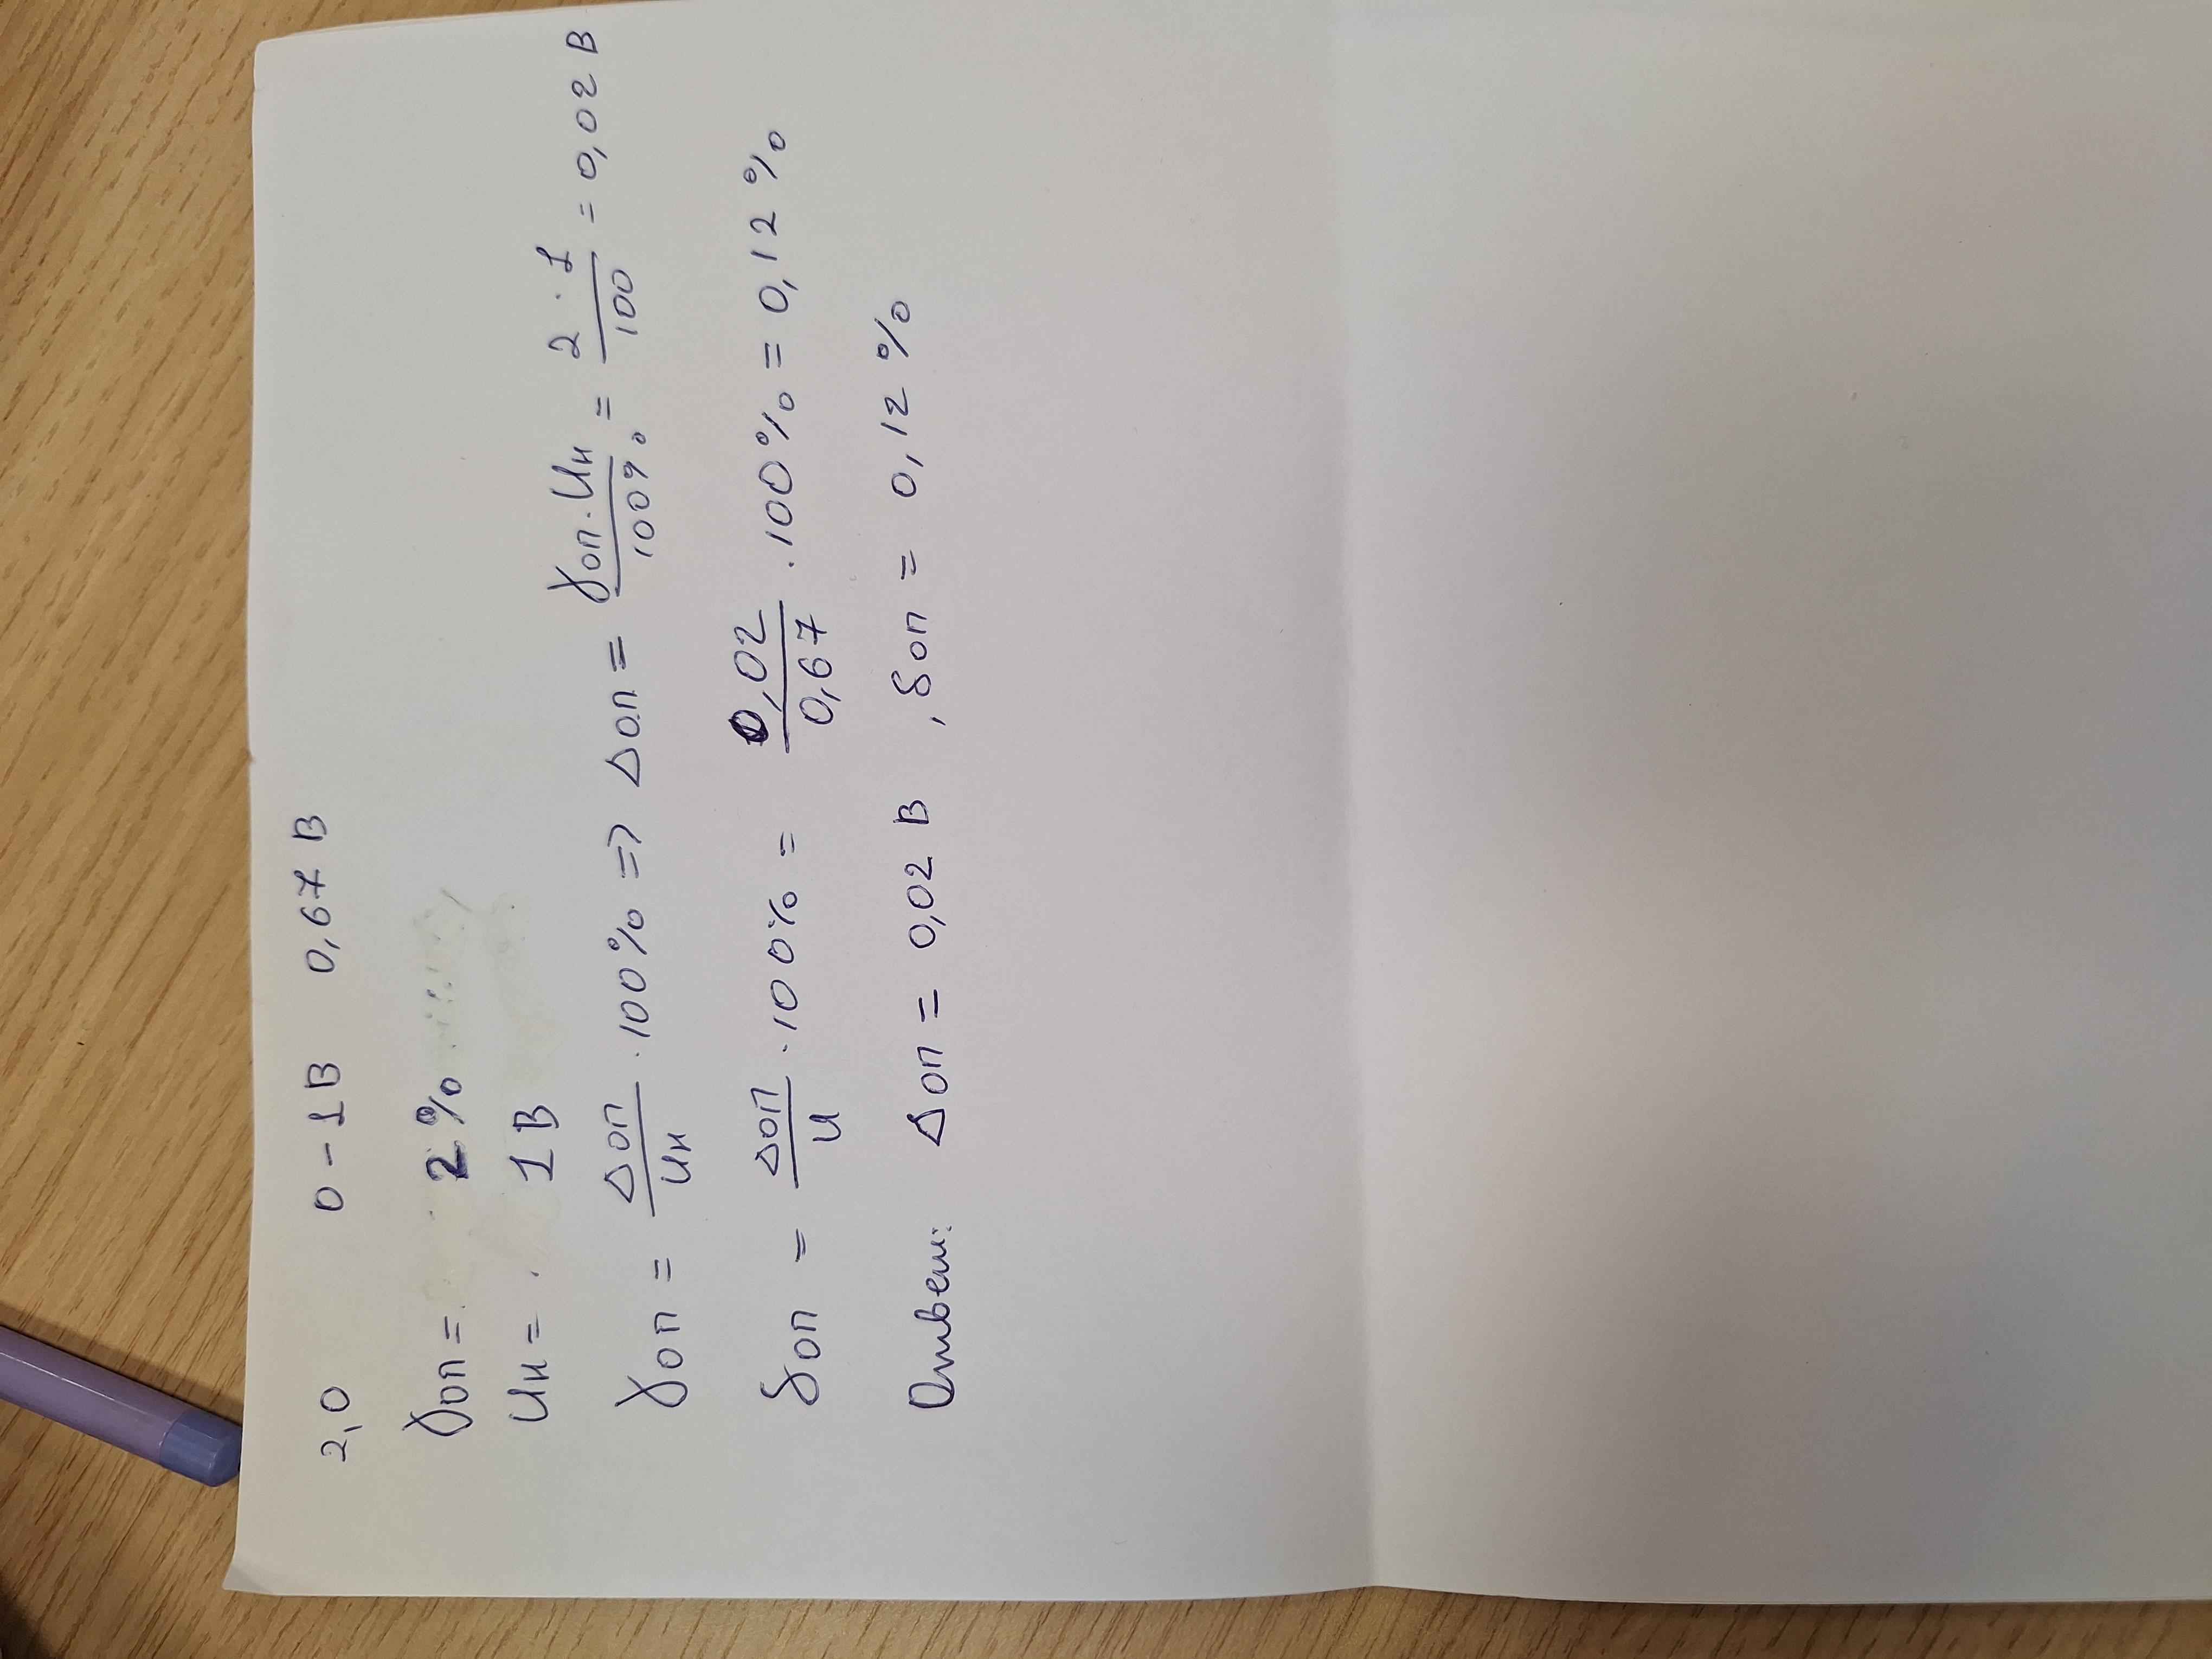 2,0 0-1В 0,67 В
γоп = 2%
Uн = 1В
γоп = Δоп/Uн · 100% => Δоп = γоп·Uн/100% = 2·1/100 = 0,02 В
δоп = Δоп/U · 100% = 0,02/0,67 · 100% = 0,12 %
Ответ: Δоп = 0,02 В , δоп = 0,12 %